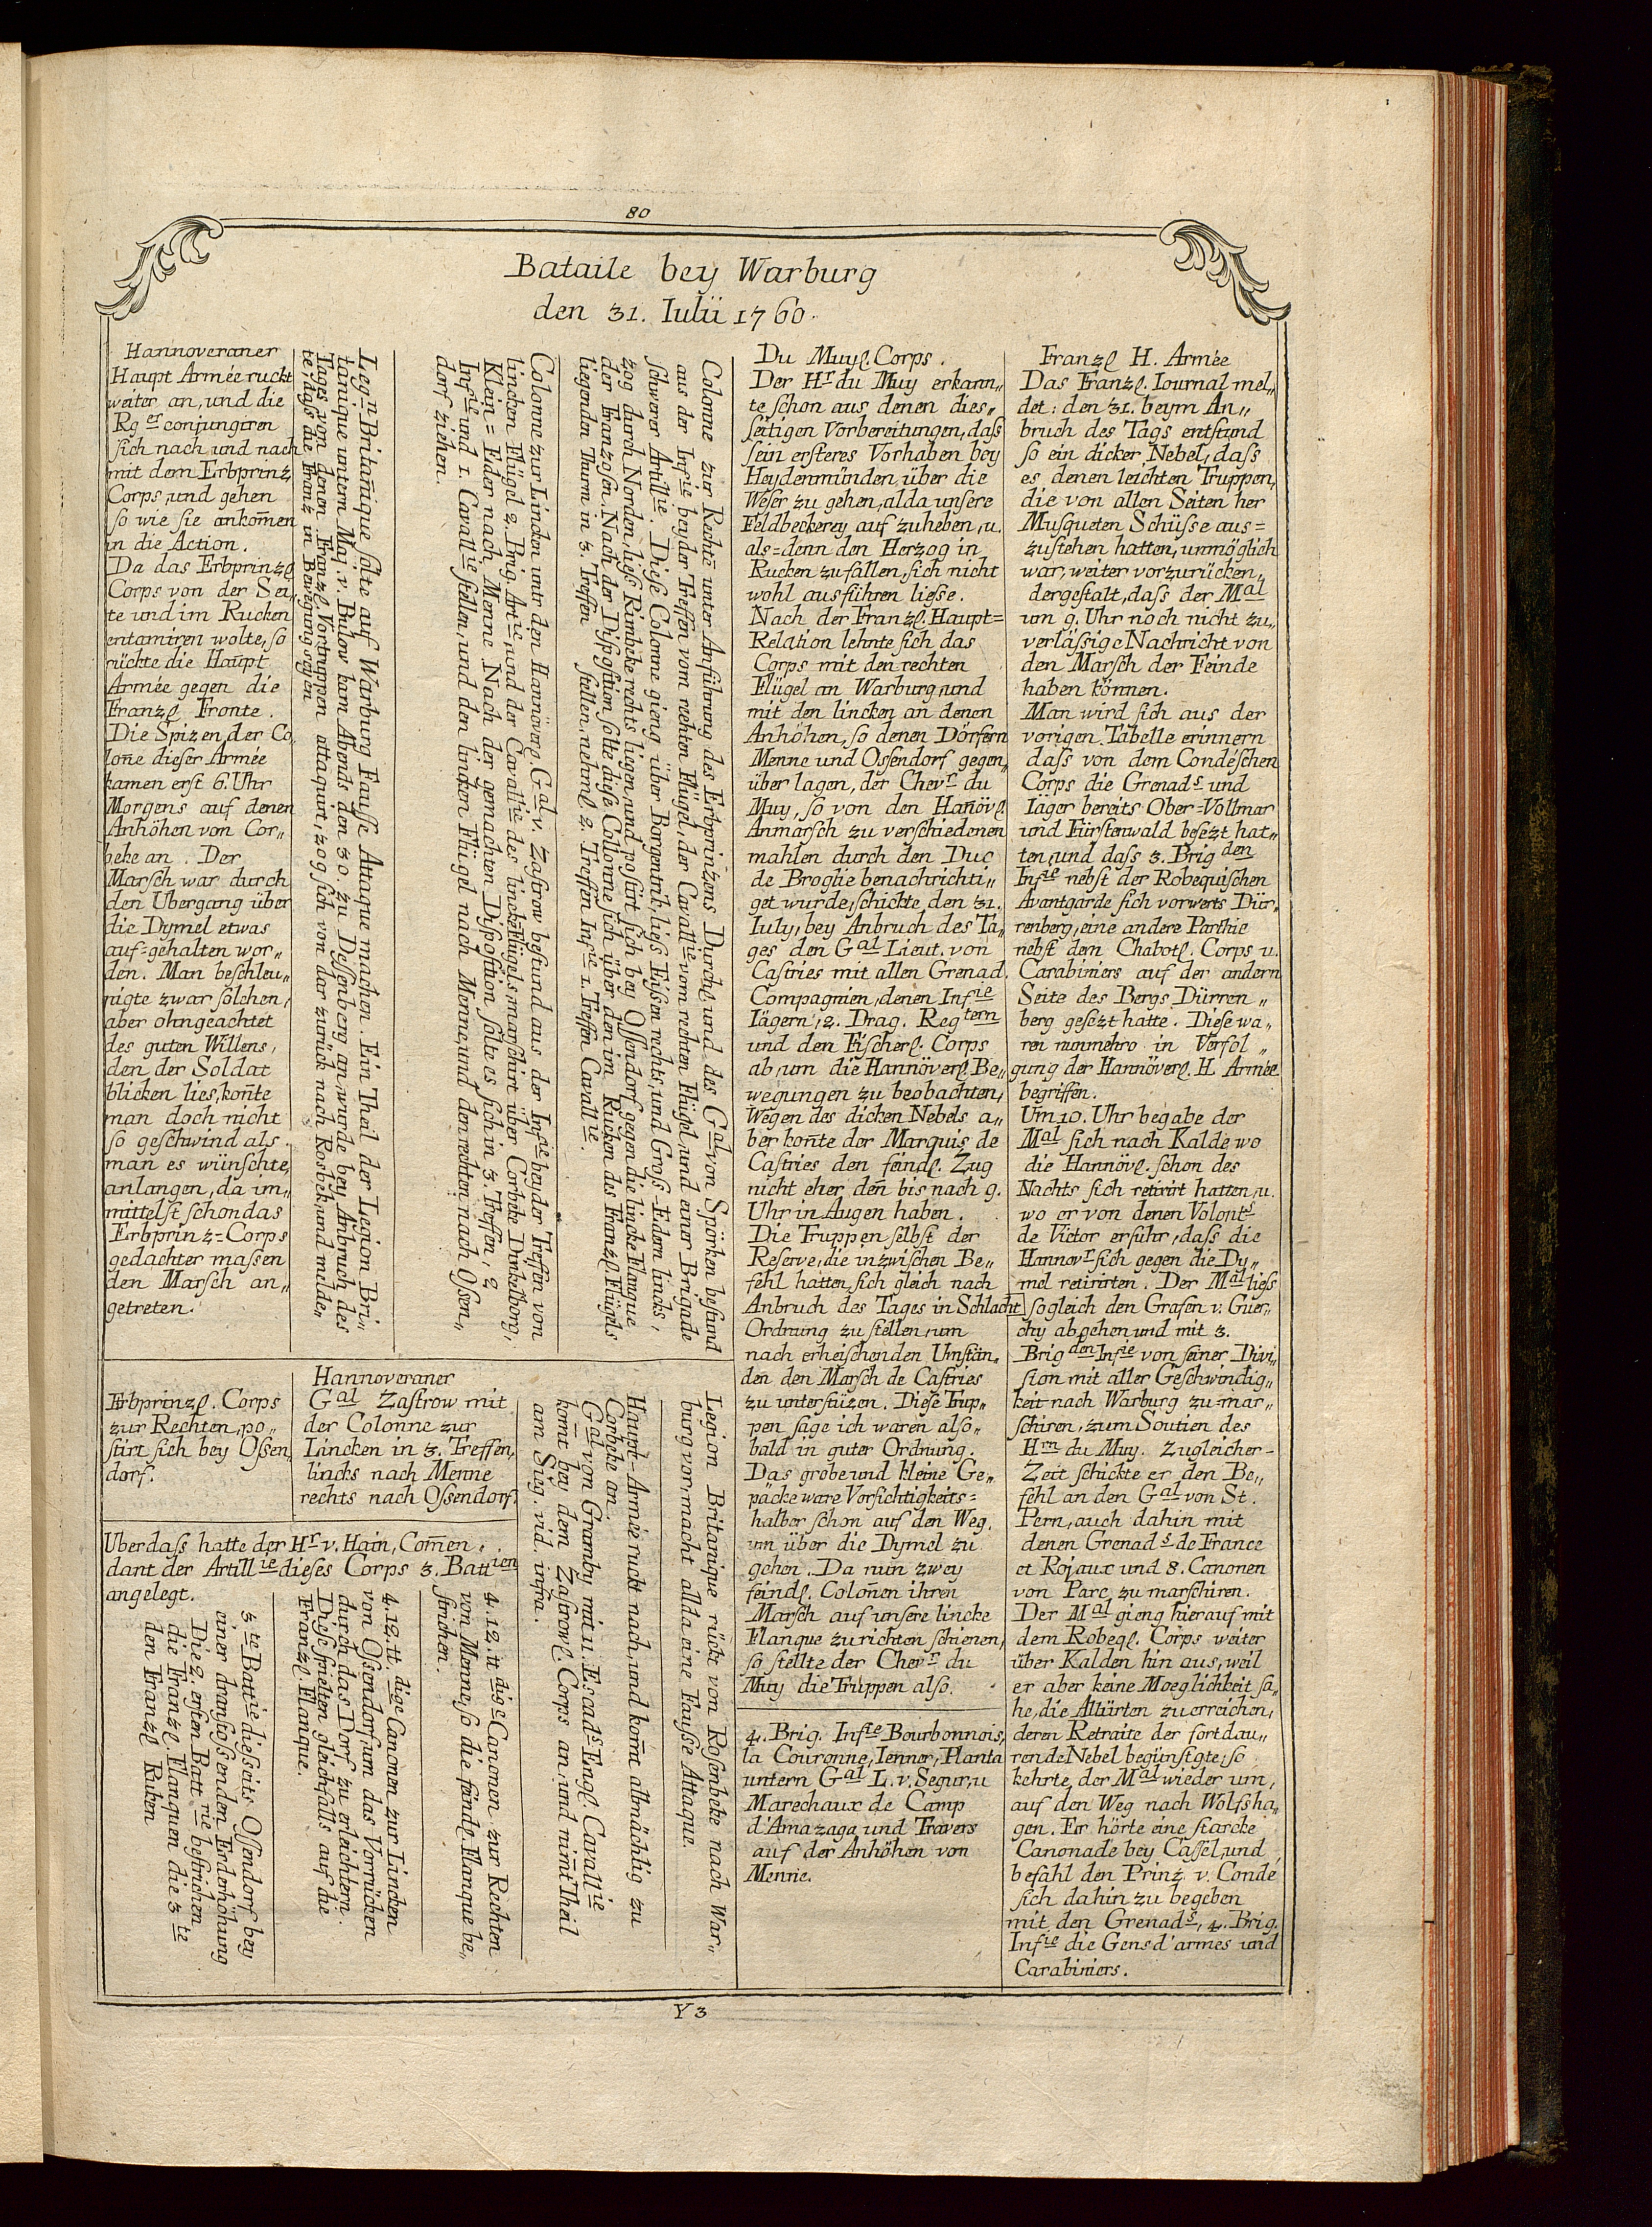 80
Bataile bey Warburg
den 31. Iulii 1760.
Hannoveraner
Haupt Armée ruckt
weiter an, und die
Rg er conjungiren
sich nach und nach
mit dem Erbprinz
Corps, und gehen
so wie sie ankom̄en
in die Action.
Da das Erbprinzl
Corps von der Sei„
te und im Rucken
entamiren wolte, so
rückte die Haupt
Armée gegen die
Franzl Fronte.
Die Spizen der Co„
lon̄e dieser Armée
kamen erst 6. Uhr
Morgens auf denen
Anhöhen von Cor„
beke an. Der
Marsch war durch
den Ubergang über
die Dymel etwas
auf-gehalten wor„
den. Man beschleu„
nigte zwar solchen,
aber ohngeachtet
des guten Willens,
den der Soldat
blicken lies, kon̄te
man doch nicht
so geschwind als
man es wünschte,
anlangen, da im„
mittelst schon das
Erbprinz=Corps
gedachter massen
den Marsch an„
getreten.
Leg n Britan̄ique solte auf Warburg Fausse Attaque machen. Ein Theil der Legion Bri„
tanique unterm Maj. v. Bulow kam Abends den 30. zu Dessenberg an, wurde bey Anbruch des
Tages von denen Franzl. Vortruppen attaquirt, zog sich von dar zurück nach Rosbek, und melde„
te, dass die Franz in Bewegung seyen
Colonne zur Lincken untr den Hannöverl G al v. Zastrow bestund aus der Inf ie beyder Treffen von
lincken Flügel 2. Brig. Art ie, und der Cavall ie des lincken Flügels, marschirt über Corbeke, Dinkelborg,
Klein=Eder nach Menne. Nach der gemachten Disposition solte es sich in 3. Treffen, 2
Inf rie und 1. Cavall ie stellen, und den lincken Flügel nach Menne, und den rechten nach Ossen„
dorf ziehen.
Colonne zur Rechtē unter Anführung des Erbprinzens Durchl. und des G al von Spörken bestund
aus der Inf ie beyder Treffen vom rechten Flügel, der Cavall ie vom rechten Flügel, und einer Brigade
schwerer Artill ie. Diese Colonne gieng über Borgentrik, liess Eissen rechts, und Gros-Edern lincks,
zog durch Norden, liess Rimbeke rechts ligen, und postirt sich bey Ossendorf gegen die lincke Flanque
der Franzosen. Nach der Disposition solte diese Collonne sich über den im Rucken des Franzl. Flügels
liegenden Thurm in 3. Treffen stellen, nehml. 2. Treffen Inf ie 1. Treffen Cavall ie.
Erbprinzl. Corps
zur Rechten, po„
stirt sich bey Ossen„
dorf.
Hannoveraner
G al Zastrow mit
der Colonne zur
Lincken in 3. Treffen,
lincks nach Menne
rechts nach Ossendorf.
Uberdass hatte der H r v. Hain, Com̄en„
dant der Artill ie dieses Corps 3. Batt ien
angelegt.
3 te Batt ie disseits Ossendorf bey
einer dranstossenden Erderhöhung
Die 2. ersten Batt rie bestrichen
die Franzl. Flanquen die 3 te
den Franzl Ruken
4. 12. tt dige Canonen zur Lincken
von Ossendorf, um das Vorrücken
durch das Dorf zu erleichtern.
Diese spielten gleichfalls auf die
Franzl. Flanque.
4. 12. tt dige Canonen zur Rechten
von Menne, so die feindl. Flanque be„
strichen.
Haupt-Armée ruckt nach, und kom̄t allmächlig zu
Corbeke an.
G al von Gramby mit 11. Escad s Engl. Cavall ie
kom̄t bey dem Zastrowl. Corps an, und nim̄t Theil
am Sieg. vid. infra.
Legion Britanique rückt von Rossenbeke nach War„
burg vor, macht allda eine Fausse Attaque.
Du Muyl. Corps.
Der H r du Muy erkann„
te schon aus denen dies„
seitigen Vorbereitungen, dass
sein ersteres Vorhaben bey
Heydenmünden, über die
Weser zu gehen, alda unsere
Feldbeckerey auf zuheben, u.
als=denn den Herzog in
Rucken zu fallen, sich nicht
wohl ausführen liesse.
Nach der Franzl. Haupt=
Relation lehnte sich das
Corps mit den rechten
Flügel an Warburg, und
mit den lincken an denen
Anhöhen, so denen Dörfern
Menne und Ossendorf gegen„
über lagen, der Chev r du
Muy, so von den Han̄övl.
Anmarsch zu verschiedenen
mahlen durch den Duc
de Broglie benachrichti„
get wurde, schickte, den 31.
Iuly, bey Anbruch des Ta„
ges den G al Lieut. von
Castries mit allen Grenad.
Compagnien, denen Inf ie
Iägern, 2. Drag. Reg tern
und den Fischerl. Corps
ab, um die Hannöverl. Be„
wegungen zu beobachten,
Wegen des dicken Nebels a„
ber kon̄te der Marquis de
Castries den feindl. Zug
nicht eher, den̄ bis nach 9.
Uhr in Augen haben.
Die Truppen selbst der
Reserve, die inzwischen Be„
fehl hatten, sich gleich nach
Anbruch des Tages in Schlacht
Ordnung zu stellen, um
nach erheischenden Umstän„
den den Marsch de Castries
zu unterstüzen. Diese Trup„
pen sage ich waren also„
bald in guter Ordnung.
Das grobe und kleine Ge„
päcke ware Vorsichtigkeits=
halber schon auf den Weg,
um über die Dymel zu
gehen. Da nun zwey
feindl. Colon̄en ihren
Marsch auf unsere lincke
Flanque zu richten schienen,
so stellte der Chev r du
Muy die Truppen also.
4. Brig. Inf ie Bourbonnois,
la Couronne, Ienner, Planta
untern G al L. v. Segur, u
Marechaux de Camp
d'Amazaga und Travers
auf der Anhöhen von
Menne.
Franzl H. Armée
Das Franzl. Iournal mel„
det: den 31. beym An„
bruch des Tags entstund
so ein dicker Nebel, dass
es denen leichten Truppen,
die von allen Seiten her
Musqueten Schüsse aus=
zustehen hatten, unmöglich
war, weiter vorzurücken,
dergestalt, dass der M al
um 9. Uhr noch nicht zu„
verlässige Nachricht von
den Marsch der Feinde
haben können.
Man wird sich aus der
vorigen Tabelle erinnern
dass von dem Condéschen
Corps die Grenad s und
Iäger bereits Ober=Vollmar
und Fürstenwald besezt hat„
ten, und dass 3. Brig den
Inf ie nebst der Robequischen
Avantgarde sich vorwerts Dür„
renberg, eine andere Parthie
nebst dem Chabotl. Corps u.
Carabiniers auf der andern
Seite des Bergs Dürren„
berg gesezt hatte. Diese wa„
ren nunmehro in Verfol„
gung der Hannöverl. H. Armée
begriffen.
Um 10. Uhr begabe der
M al sich nach Kalde wo
die Hannövl. schon des
Nachts sich retirirt hatten, u.
wo er von denen Volont s
de Victor erfuhr, dass die
Hannov r sich gegen die Dy„
mel retirirten. Der M al liess
sogleich den Grafen v. Guer„
chy abgehen, und mit 3.
Brig den Inf ie von seiner Divi„
sion mit aller Geschwindig„
keit nach Warburg zu mar„
schiren, zum Soutien des
H rn du Muy. Zugleicher-
Zeit schickte er den Be„
fehl an den G al von St.
Pern, auch dahin mit
denen Grenad s de France
et Rojaux und 8. Canonen
von Parc zu marschiren.
Der M al gieng hierauf mit
dem Robeql. Corps weiter
über Kalden hin aus, weil
er aber keine Moeglichkeit sa„
he, die Alliirten zu erreichen,
deren Retraite der fortdau„
rende Nebel begünstigte, so
kehrte der M al wieder um,
auf den Weg nach Wolfsha„
gen. Er hörte eine starcke
Canonade bey Cassel, und
befahl den Prinz v. Conde
sich dahin zu begeben
mit den Grenad s, 4. Brig.
Inf ie die Gens d'armes und
Carabiniers.
Y 3